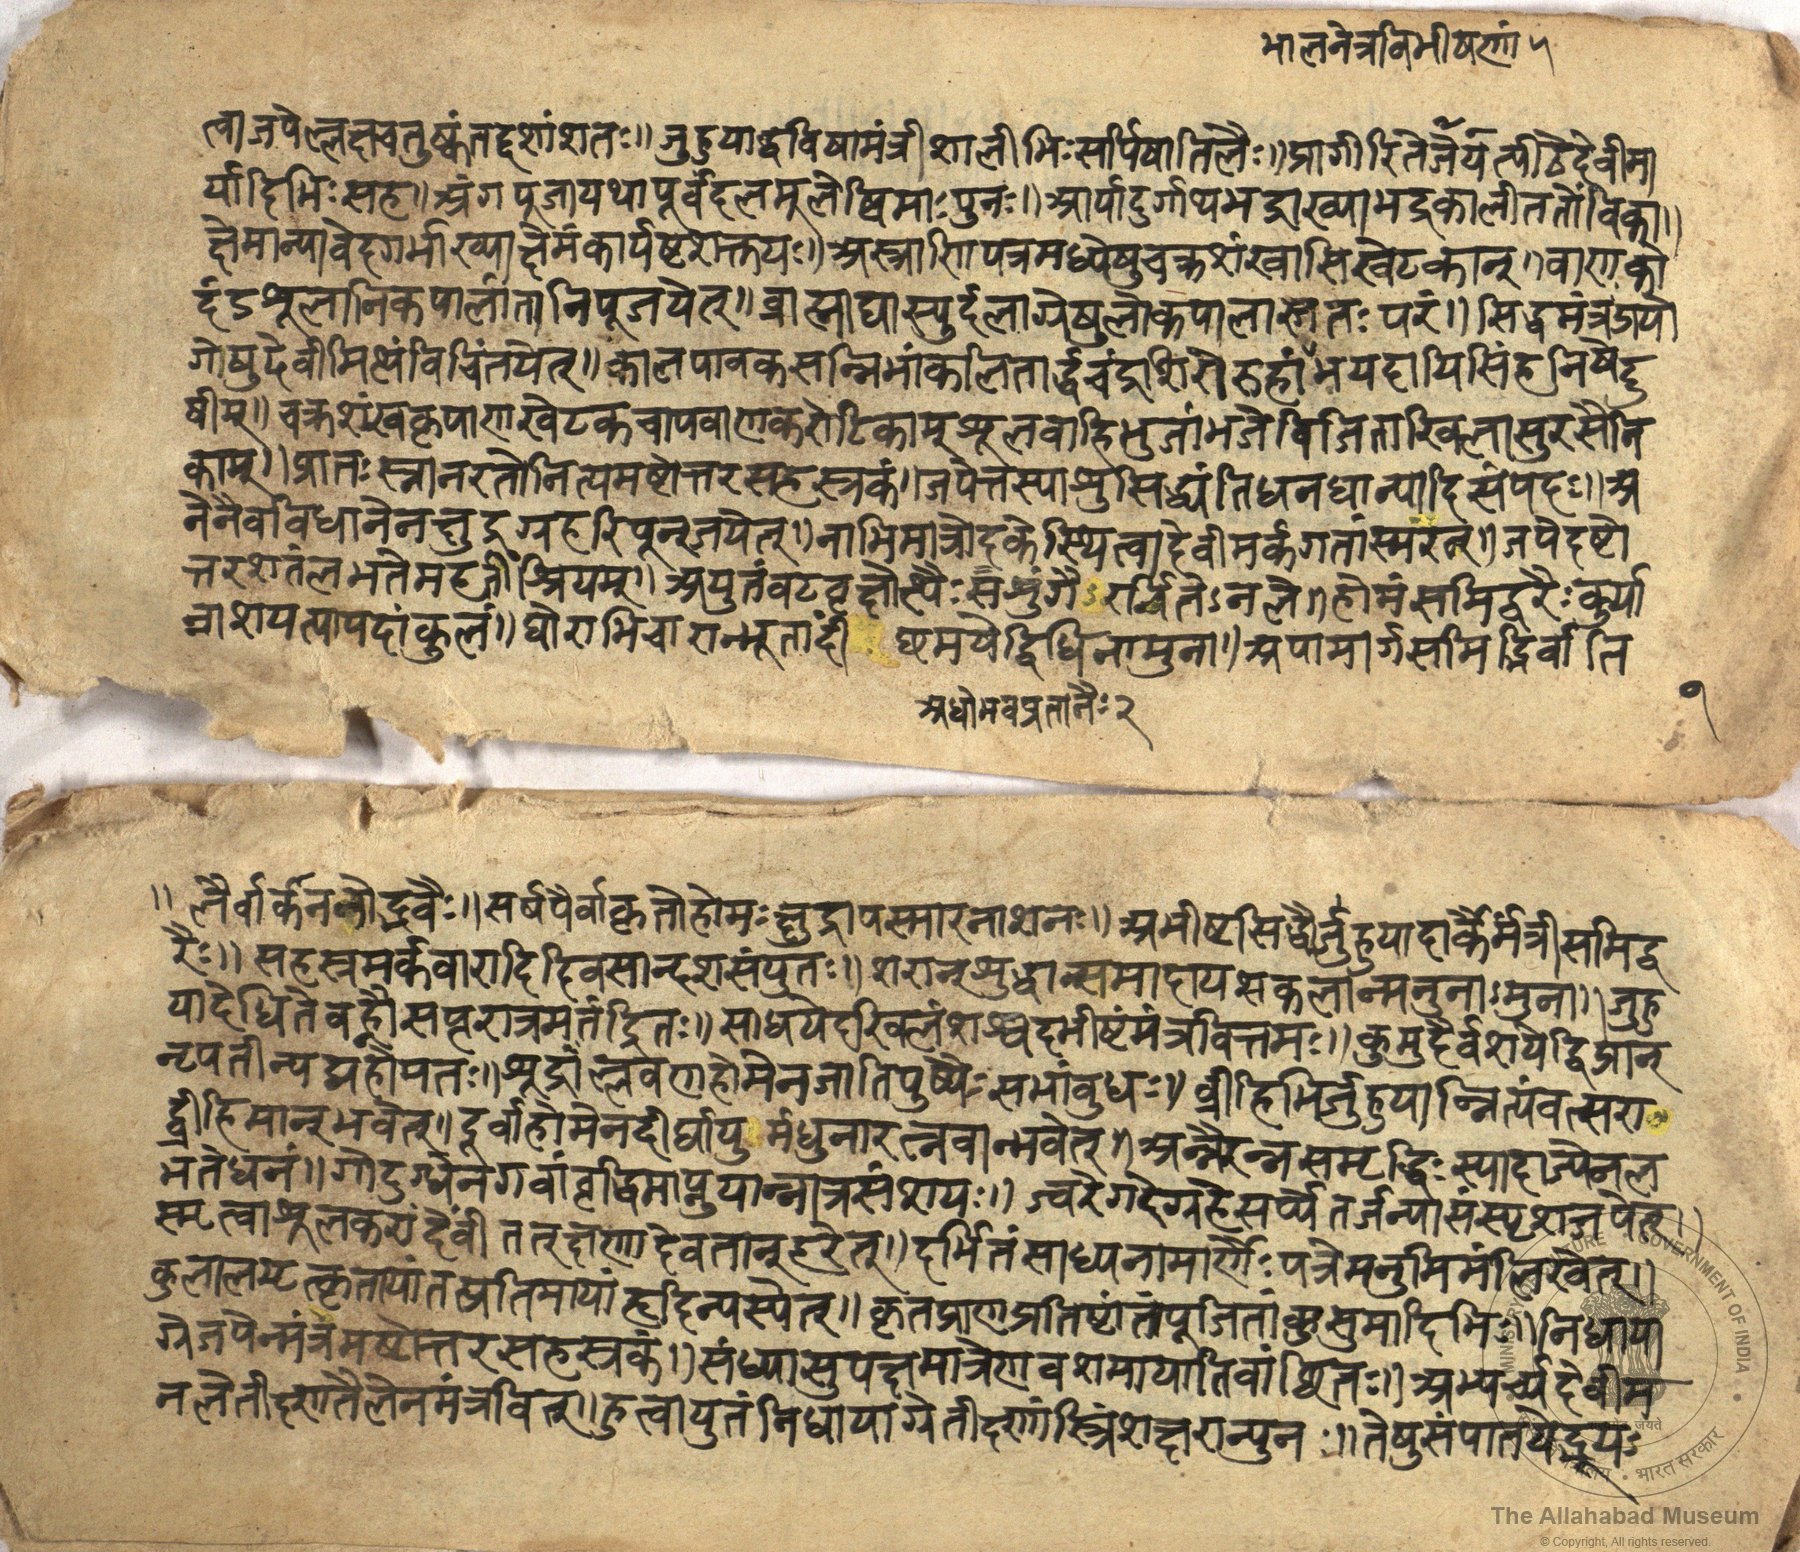 भालनेत्रविभीषणां ५
त्वा जपेल्लक्षचतुष्कं तद्दशांशतः॥ जुहुयाद्धविषा मंत्री शालीभिः सर्पिषा तिलैः॥ प्रागीरिते जयेत्पीठे देवीमा
र्यादिभिः सह॥ अंगपूजा यथापूर्वं दलमूलेष्विमाः पुनः॥ आर्या दुर्गाथ भद्राख्या भद्रकाली ततोंबिका॥
क्षेमान्या वेदगर्भाख्या क्षेमंकार्यष्टशक्तयः॥ अस्त्राणि पत्रमध्येषु चक्रशंखासिखेटकान्॥ वाणको
दंडशूलानि कपालांतानि पूजयेत्॥ ब्राह्माद्या स्युर्दलाग्रेषु लोकपालास्ततः परं॥ सिद्धमंत्रः प्रयो
गेषु देवीमित्थं विचिंतयेत्॥ कालपावकसन्निभां कलितार्द्धचंद्रशिरोरुहां भयदायिसिंहनिषेदु
षीम्॥ चक्रशंखकृपाणखेटकचापवाणकरोटिकाम् शूलवाहिभुजां भजे विजिताखिलासुरसैनि
काम्॥ प्रातः स्नानरतो नित्यमष्टोत्तरसहस्रकं॥ जपेत्तस्याशु सिद्ध्यंति धनधान्यादिसंपदः॥ अ
नेनैव विधानेन क्षुद्रग्रहरिपून् जयेत्॥ नाभिमात्रोदके स्थित्वा देवीमर्कगतां स्मरन्॥ जपेदष्टो
त्तरशतं लभते महतीं श्रियम्॥ अयुतं वटवृक्षोत्थैः सशृंगैरर्चितेऽनले॥ होमं समिद्वरैः कुर्या
न्नाशयत्यापदां कुलं॥ घोराभिचारान्भूतांदी ष्टमयेद्विधिनामुना॥ अपामार्गसमिद्भिर्वा ति
अधोभवव्रतानैः २
१
॥ लैर्वार्कनलोद्भवैः॥ सर्षपैर्वा कृतो होमः क्षुद्रापस्मारनाशनः॥ अभीष्टसिद्ध्यै जुहुयादार्कैर्मंत्री समिद्व
रैः॥ सहस्रमर्कवारादि दिवसान्दशसंयुतः॥ शरान्शुद्धान्समादाय शकलान्मनुनाऽमुना॥ जुहु
यादेधिते वह्नौ सप्तरात्रमतंद्रितः॥ साधयेदखिलं शश्वदभीष्टं मंत्रवित्तमः॥ कुमुदैर्वशयेद्द्विजान्
नृपतीन्पद्महोमतः॥ शूद्रांल्लवणहोमेन जातिपुष्पैः सभां बुधः॥ व्रीहिभिर्जुहुयान्नित्यं वत्सरा
द्व्रीहिमान्भवेत्॥ दूर्वाहोमेन दीर्घायुर्मधुना रत्नवान्भवेत्॥ अन्नैरन्नसमृद्धिः स्यादाज्येन ल
भते धनं॥ गोदुग्धेन गवां वृद्धिमाप्नुयान्नात्र संशयः॥ ज्वरे गदे ग्रहे सर्प्ये तर्जन्या संस्पृशन् जपेत्॥
स्मृत्वा शूलकरां देवीं तत्क्षणादेव तान्हरेत्॥ दर्भितं साध्यनामार्णैः पत्रे मनुमिमं लिखेत्॥
कुलालमृत्कृतायां तत्प्रतिमायां हृदि न्यस्येत्॥ कृतप्राणप्रतिष्टां तां पूजितां कुसुमादिभिः॥ निधाया
ग्रे जपेन्मंत्रमष्टोत्तरसहस्रकं॥ संध्यासु पक्षमात्रेण वशमायाति वांछितः॥ अभ्यर्च्य देवीम
नले तीक्ष्णतैलेन मंत्रवित्॥ हुत्वायुतं निधायाग्रे तीक्ष्णांस्त्रिंशच्छरान्पुनः॥ तेषु संपातयेद्भूयः
The Allahabad Museum
© Copyright, All rights reserved.